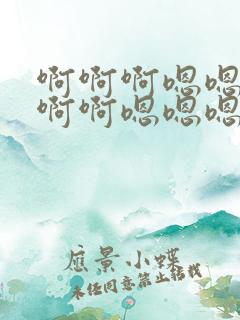 啊啊啊嗯嗯
啊啊嗯嗯嗯
应景小蝶
未经同意禁止转载